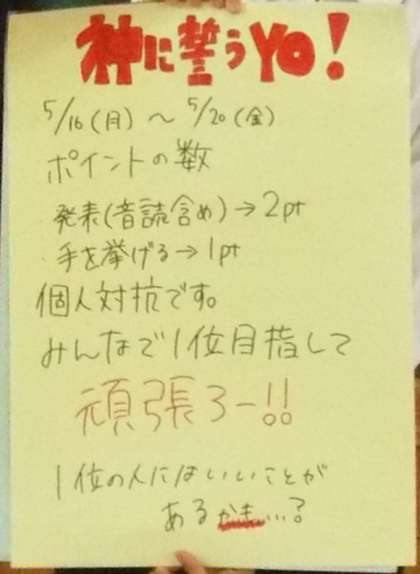 神に誓うYO!
5/16(月)～5/20(金)
ポイントの数
発表(音読含め)→2pt
・手を挙げる→1pt
個人対抗です。
みんなで1位目指して
頑張ろー!!
1位の人にはいいことが
あるかも…?